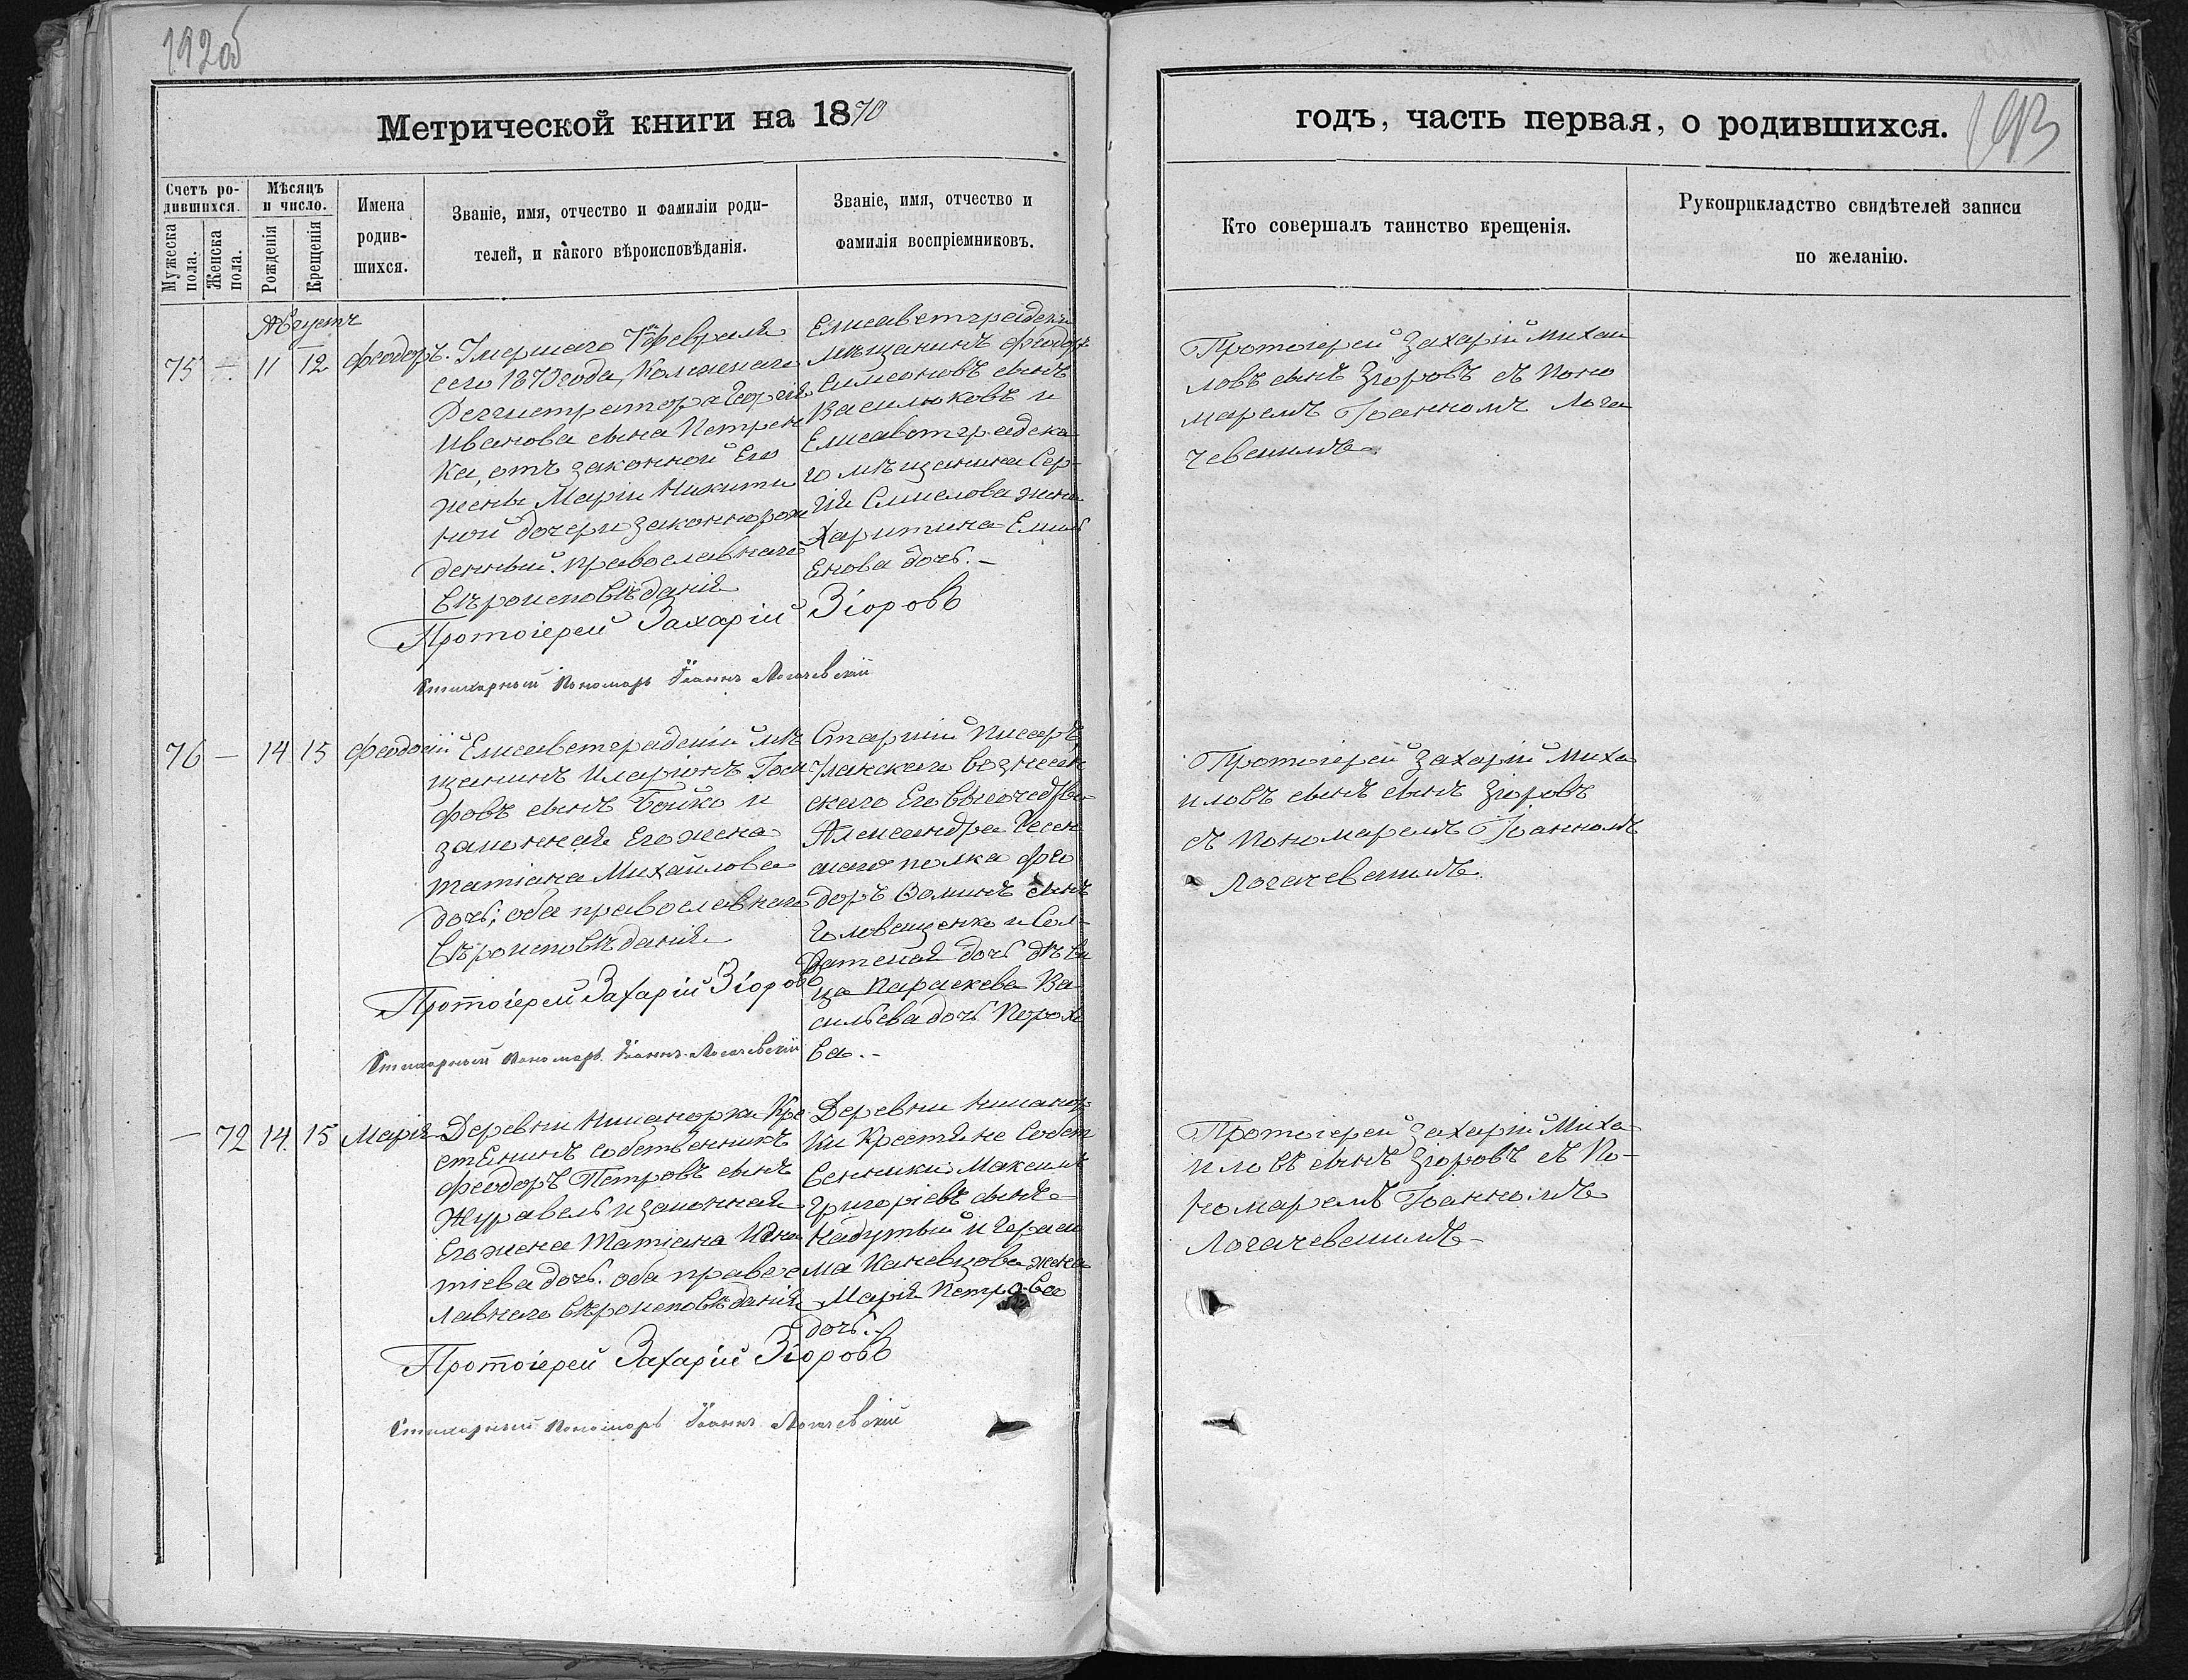 192об
Метрической книги на 1870
Счетъ ро-
дившихся.
Мужеска пола.
Женска пола.
Мѣсяцъ
и число.
Рожденія
Крещенія
Имена
родив-
шихся.
Званіе, имя, отчество и фамиліи роди-
телей, и какого вѣроисповѣданія.
Званіе, имя, отчество и
фамилія воспріемниковъ.
Августъ
75 - 11 12 Феодоръ.
Умершаго 7го Февраля
сего 1870 года, Колежскаго
Регистратора Георгія
Иванова сына Петрен
ка, отъ законной Его
жены Маріи Никити
ной дочери законнорож
денный. православнаго
вѣроисповѣданія
Елисаветградскій
мѣщанинъ Феодоръ
Симеоновъ сынъ
Василюковъ и
Елисаветградска
го мѣщанина Сер-
гія жена
Харитина Емель
енова дочь. -
Протоіерей Захарій Зіоровъ
Стихарный Пономарь Іоаннъ Логачевскій
76 - 14 15 Феодосій
Елисаветградскій мѣ
щанинъ Иларіонъ Іоси
фовъ сынъ Бойко и
законная Его жена
Татіана Михайлова
дочь; оба православнаго
вѣроисповѣданія
Старшій Писарь,
Уланскаго вознесен
скаго Его Высочества
Александра Гесен
скаго полка Фео
доръ Фоминъ сынъ
Головащенко и Сол-
датская дочь дѣви
ца Параскева Ва
сильева дочь Порохо
ва. -
Протоіерей Захарій Зіоровъ
Стихарный Пономарь Іоаннъ Логачевскій
- 72 14. 15 Марія
Деревни Никанорки Кре
стьянинъ собственникъ
Феодоръ Петровъ сынъ
Журавель и законная
Его жена Татіана Игна
тіева дочь. оба правос
лавнаго вѣроисповѣданія
Деревни Никанор
ки Крестьяне Собст
венники Максимъ
Григоріевъ сынъ
Надутый и Гераси
ма Каневцова жена
Марія Петрова
дочь. -
Протоіерей Захарій Зіоровъ
Стихарный Пономарь Іоаннъ Логачевскій
193
годъ, часть первая, о родившихся.
Кто совершалъ таинство крещенія.
Рукоприкладство свидѣтелей записи
по желанію.
Протоіерей Захарій Михаи
ловъ сынъ Зіоровъ съ Поно
маремъ Іоанномъ Лога
чевскимъ
Протоіерей Захарій Миха
иловъ сынъ сынъ Зіоровъ
съ Пономаремъ Іоанномъ
Логачевскимъ
Протоіерей Захарій Миха
иловъ сынъ Зіоровъ съ По-
номаремъ Іоанномъ
Логачевскимъ